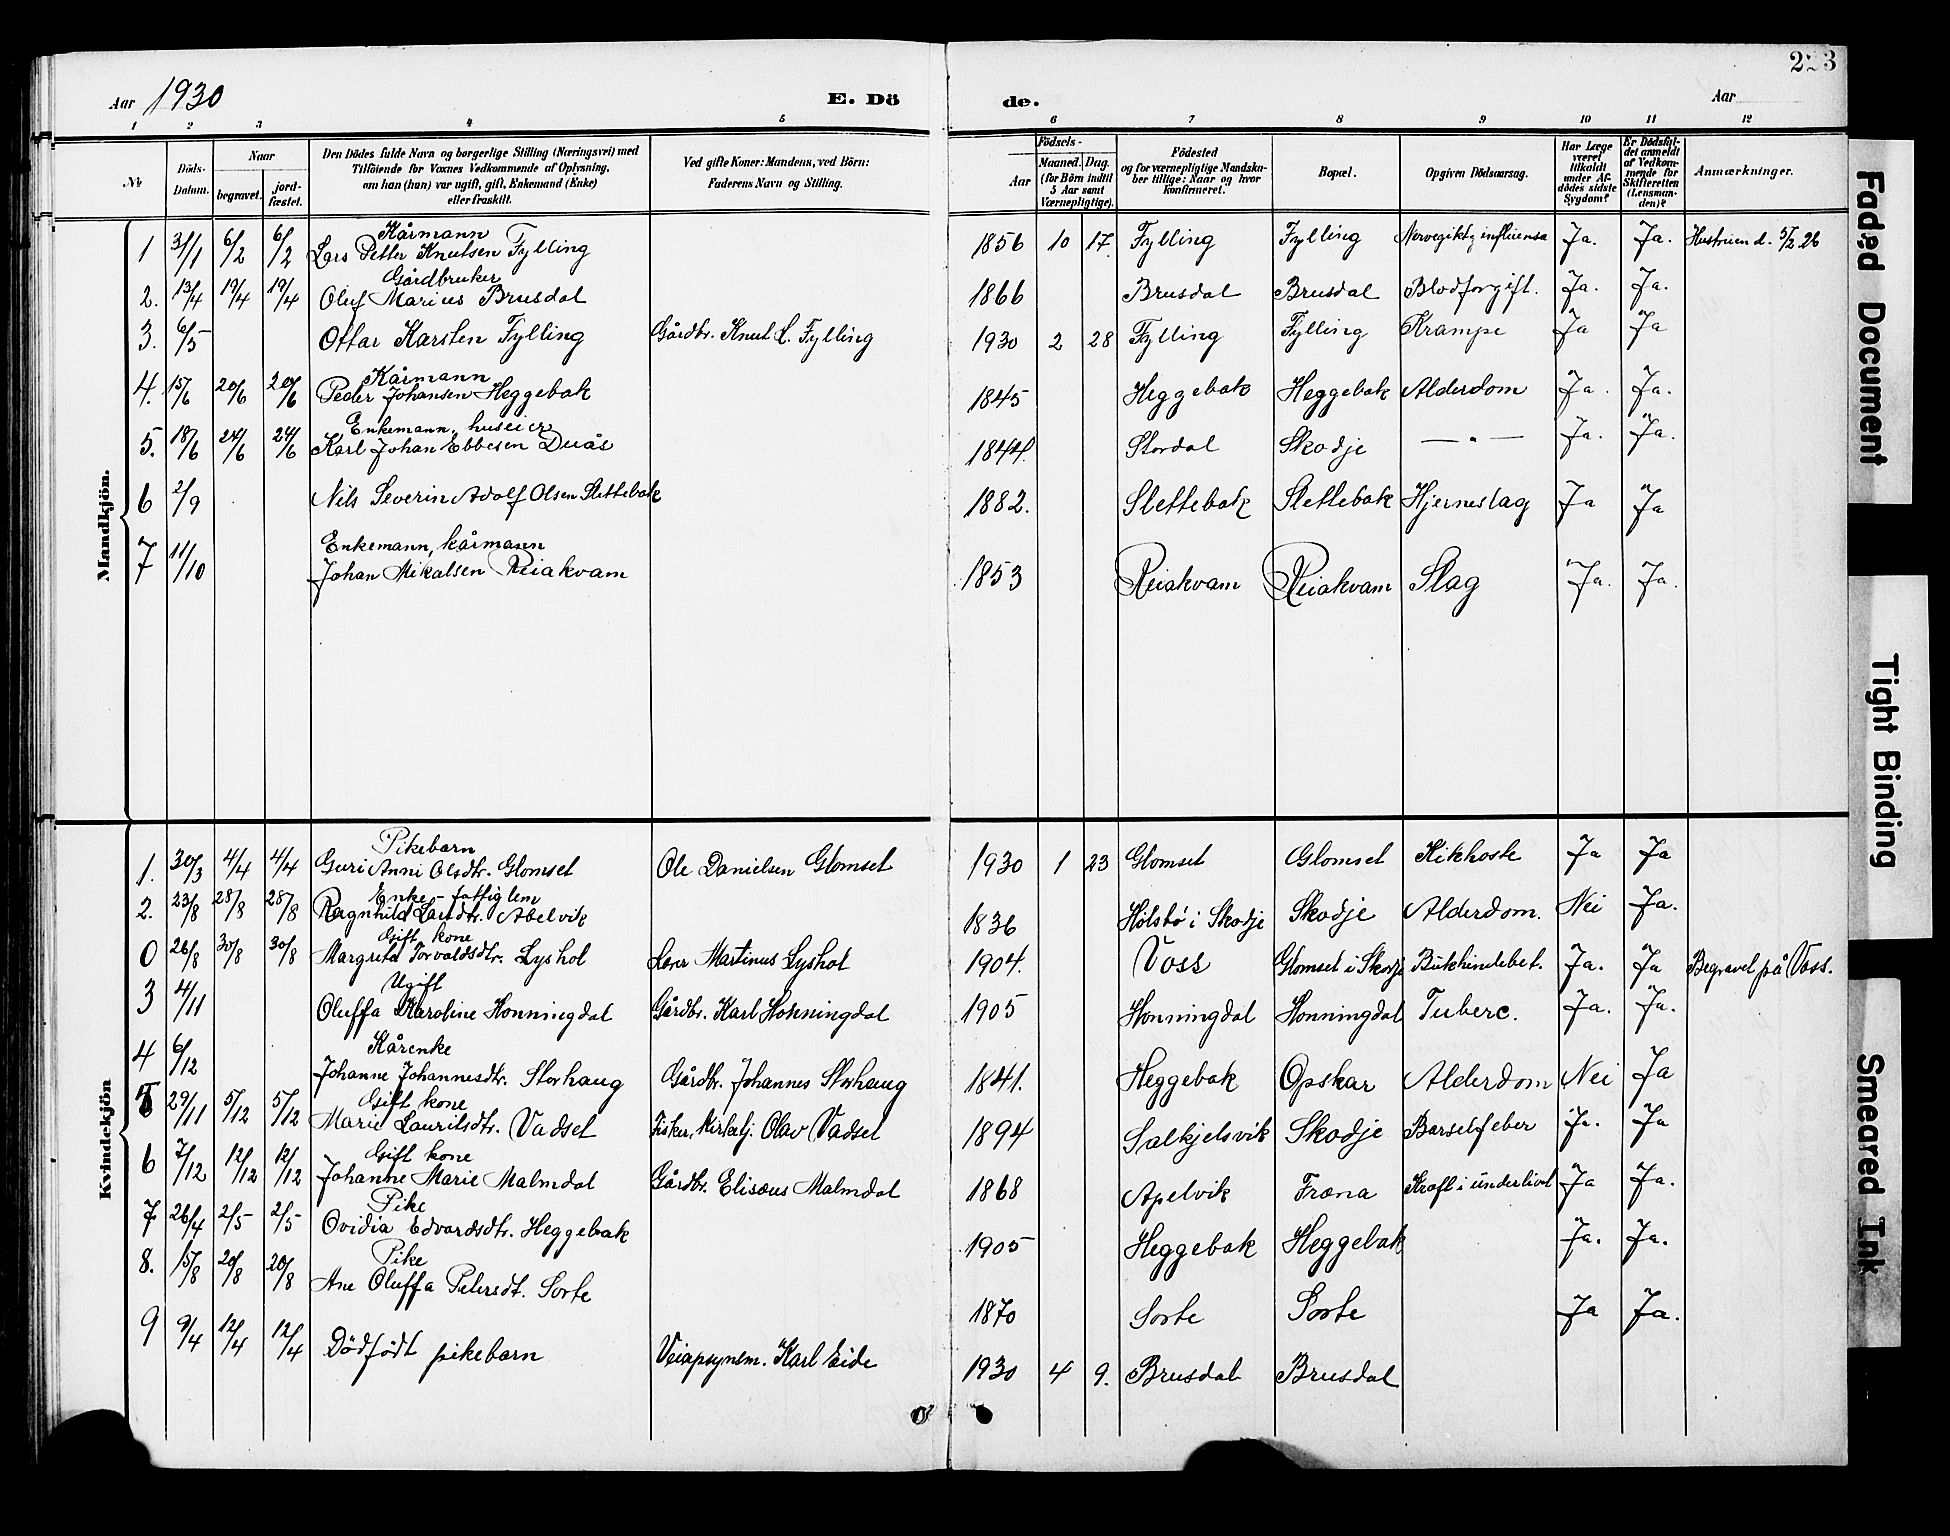 223
Aar 1930
E. Dö
de.
Aar
1 2 3 4 5 6 7 8 9 10 11 12
No
Döds-Datum.
Naar
begravet.
jord-fæstet.
Den Dödes fulde Navn og borgerlige Stilling (Næringsvei) med
Tilföiende for Voxnes Vedkommende af Oplysning,
om han (hun) var ugift, gift, Enkemand (Enke)
eller fraskilt.
Ved gifte Koner: Mandens, ved Börn:
Faderens Navn og Stilling.
Födsels-
Aar
Maaned. Dag.
(for Börn indtil
5 Aar samt
Værnepligtige).
Födested
og for værnepligtige Mandska-
ber tillige: Naar og hvor
konfirmeret.
Bopæl.
Opgiven Dödsaarsag.
Har Læge
været
tilkaldt
under Af-
dödes sidste
Sygdom?
Er Dödsfal-
det anmeldt
af Vedkom-
mende for
Skifteretten
(Lensman-
den)?
Anmærkninger.
Mandkjön.
Kårmann
1 31/1 6/2 6/2 Lars Petter Knutsen Fylling 1856 10 17. Fylling Fylling influensa Ja. Ja. Hustruen d. 5/2 26
Gårdbruker
2. 13/4 19/4 19/4 Oluf Marius Brusdal 1866 Brusdal Brusdal Blodforgift. Ja. Ja.
3. 6/5 Ottar Karsten Fylling Gårdbr. Knut L. Fylling 1930 2 28 Fylling Fylling Krampe Ja Ja
Kårmann
4. 15/6 20/6 20/6 Peder Johansen Heggebak 1845 Heggebak Heggebak Alderdom Ja. Ja.
Enkemann, huseier
5. 18/6 24/6 24/6 Karl Johan Ebbesen Duås 1844. Stordal Skodje — " — Ja. Ja.
6 2/9 Nils Severin Adolf Olsen Slettebak 1882. Slettebak Slettebak Hjerneslag Ja Ja
Enkemann, kårmann
7 11/10 Johan Mikalsen Reiakvam 1853 Reiakvam Reiakvam Slag Ja. Ja.
Kvindekjön
Pikebarn
1. 30/3 4/4 4/4 Guri Anni Olsdtr. Glomset Ole Danielsen Glomset 1930 1 23 Glomset Glomset Kikhoste Ja Ja
Enke - fattiglem
2. 23/8 28/8 28/8 Ragnhild Larsdtr. Abelvik 1836 Holsbø i Skodje Skodje Alderdom. Nei Ja.
Gift kone
0 26/8 30/8 30/8 Margreta Torvaldsdtr. Lyshol Lærer Martinus Lyshol 1904. Voss Glomset i Skodje Bukhindebet. Ja. Ja Begravet på Voss.
Ugift
3 4/11 Oluffa Karoline Honningdal Gårdbr. Karl Honningdal 1905 Honningdal Honningdal Tuberc. Ja. Ja.
Kårenke
4 6/12 Johanne Johannesdtr. Storhaug Gårdbr. Johannes Storhaug 1841. Heggebak Opskar Alderdom Nei Ja
Gift kone
5 29/11 5/12 5/12 Marie Lauritsdtr. Vadset Fisker, kirketj. Olav Vadset 1894 Salkjelsvik Skodje Barselfeber Ja. Ja
Gift kone
6 7/12 12/12 12/12 Johanne Marie Malmdal Gårdbr. Elisæus Malmdal 1868 Apelvik Fræna Kræft i underlivet Ja Ja.
Pike
7 26/4 2/5 2/5 Ovidia Edvardsdtr. Heggebak 1905 Heggebak Heggebak Ja. Ja.
Pike
8. 15/8 20/8 20/8 Ane Oluffa Petersdt. Sorte 1870 Sorte Sorte Ja Ja.
9 9/4 12/4 12/4 Dödfødt pikebarn Veiopsynsm. Karl Eide 1930 4 9. Brusdal Brusdal
Faded Document
Tight Binding
Smeared Ink